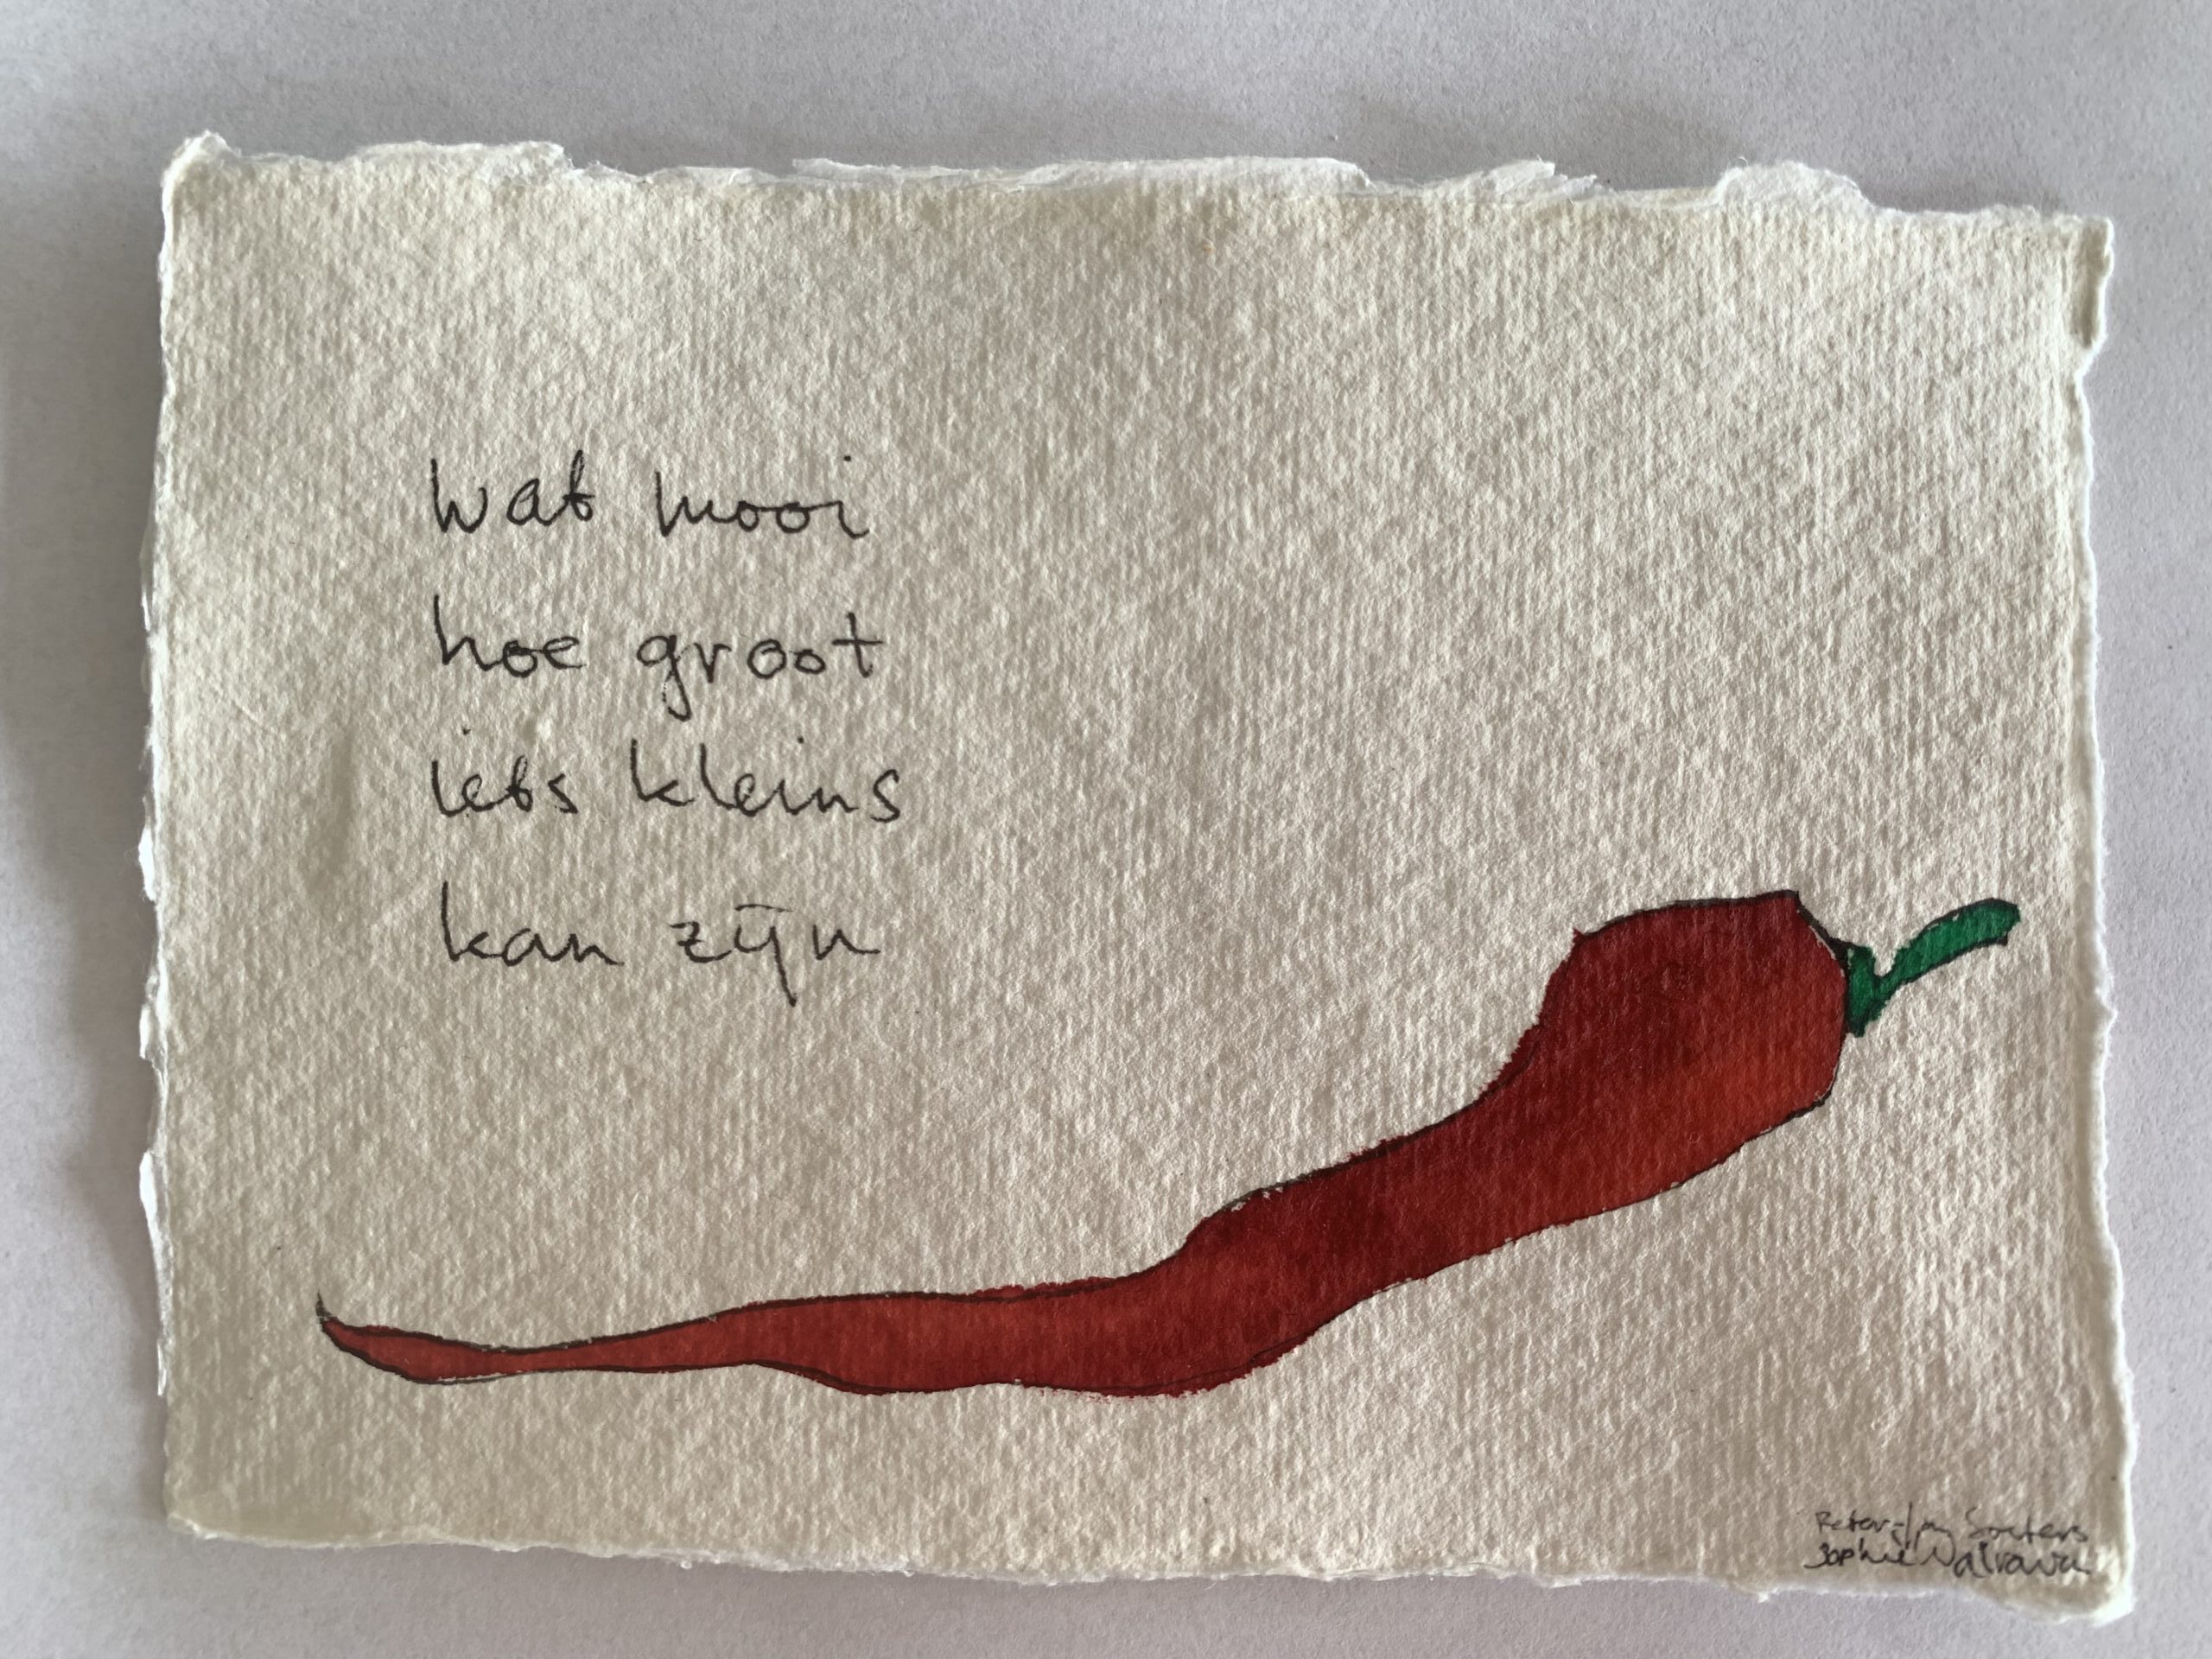 wat mooi
hoe groot
iets kleins
kan zijn
Peter-Jay Souters
Sophie Walraven